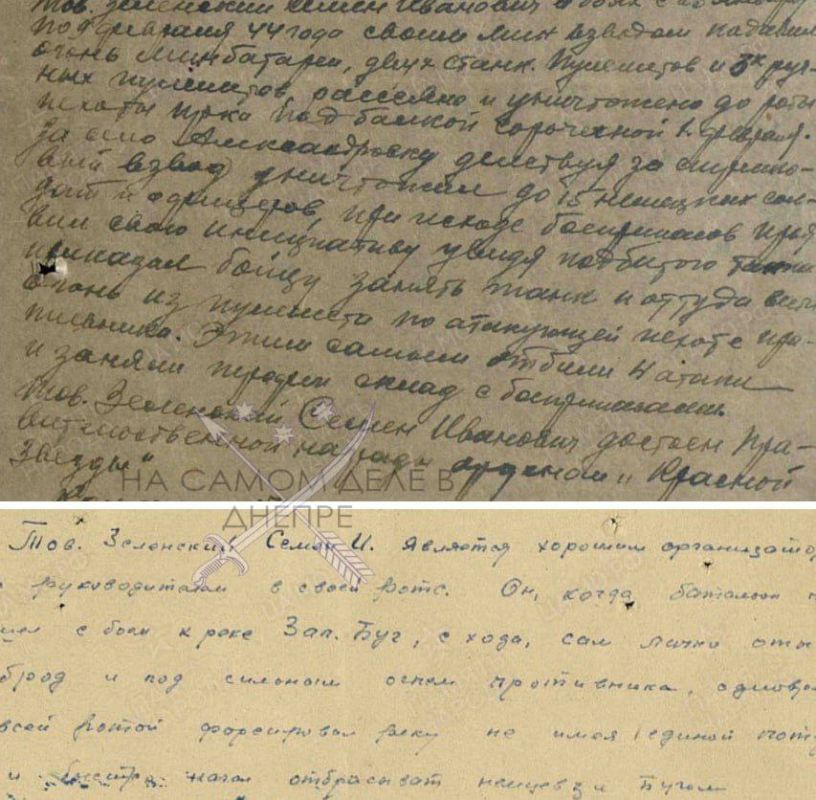 Тов. Зеленский Семен Иванович в боях с
февраля 44 года своим мин взводом подавил
огонь минбатареи, двух станк. пулеметов и 3х руч-
ных пулеметов, рассеяно и уничтожено до роты
пехоты пр-ка под балкой 1. февраля.
За село Александровку действуя за стрелко-
вый взвод уничтожил до 15 немецких сол-
дат и офицеров, при исходе боеприпасов проя
вил свою инициативу увидя подбитого танка
приказал бойцу занять танк и оттуда вести
огонь из пулемета по атакующей пехоте про-
тивника. Этим самым отбили 4 атаки
и заняли трофеи склад с боеприпасами.
Тов. Зеленский Семен Иванович достоен Пра-
вительственной награды орденом „Красной
Звезды"
НА САМОМ ДЕЛЕ В
ДНЕПРЕ
Тов. Зеленский Семен И. является хорошим организато
руководителем в своей роте. Он, когда батальон
с боем к реке Зап. Буг, с хода, сам лично оты
брод и под сильным огнем противника, одновр
всей ротой форсировал реку не имея единой поте
и быстро начал отбрасыват немцев за Бугом